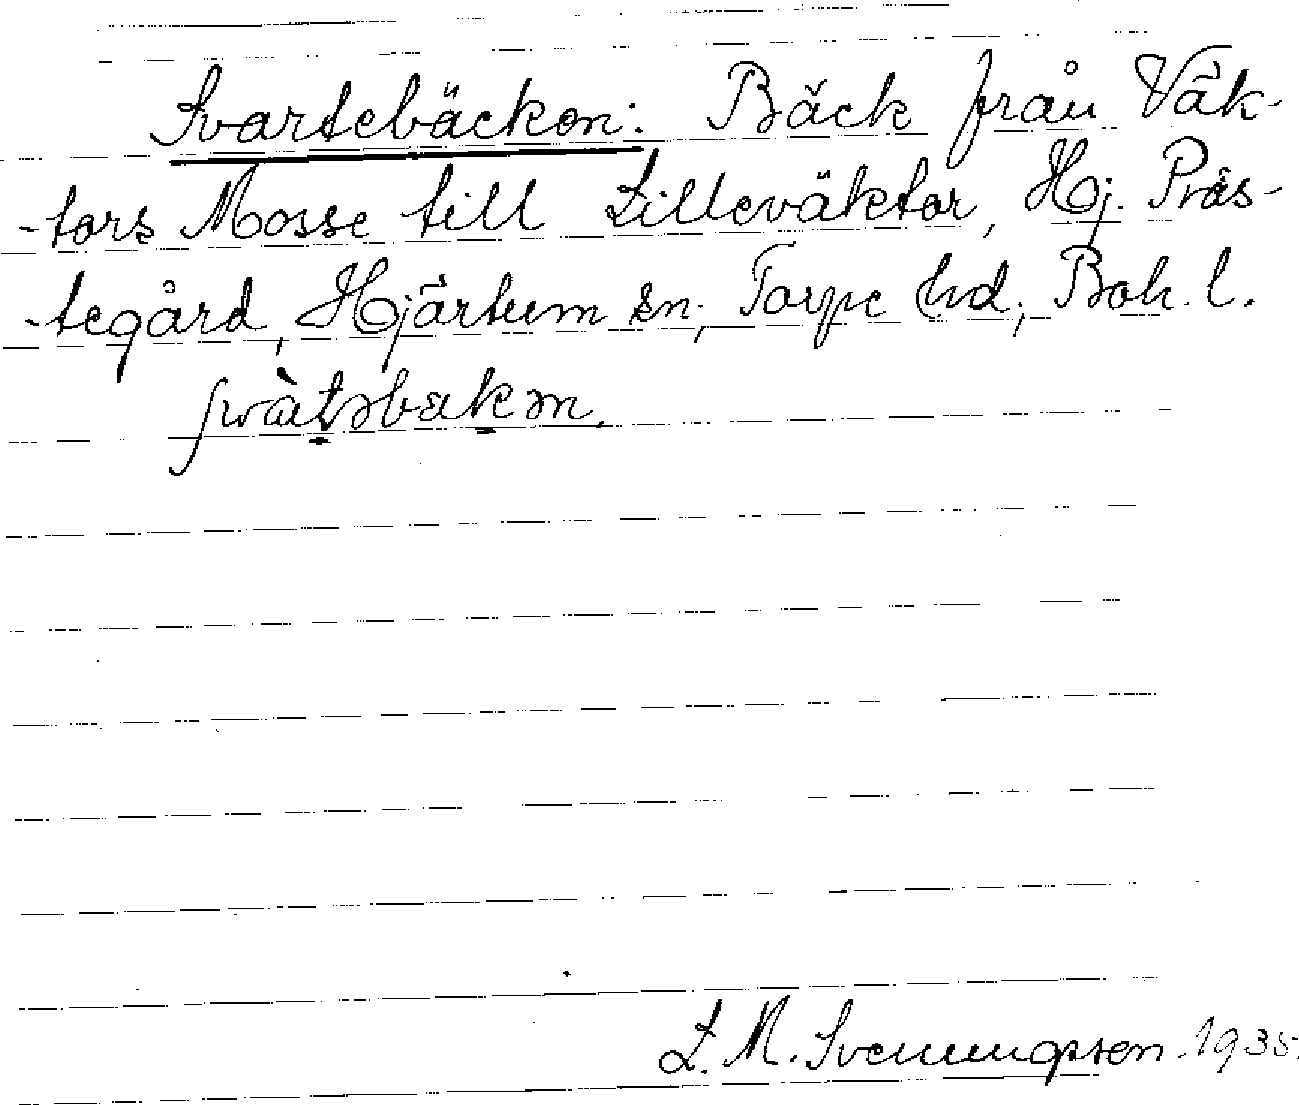 Svartebäcken: Bäck från Väk-
-tors Mosse till Lilleväktor, Hj. Präs-
-tegård, Hjärtum sn, Torpe hd, Boh. l.
L. M. Svenungsson. 1935.